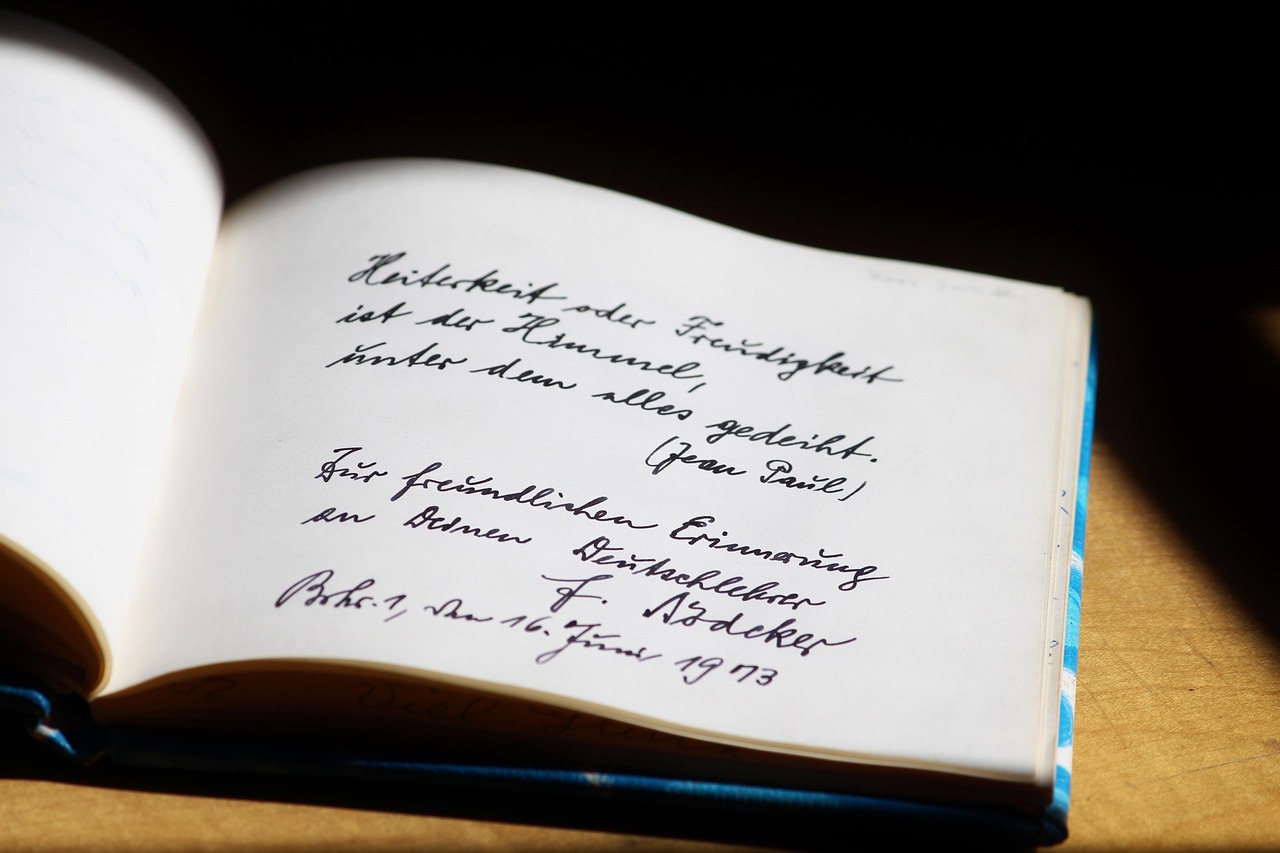 Heiterkeit oder Freudigkeit
ist der Himmel,
unter dem alles gedeiht.
(Jean Paul)
Zur freundlichen Erinnerung
an Deinen Deutschlehrer
F. Ködeker
den 16. Juni 1973
Viel